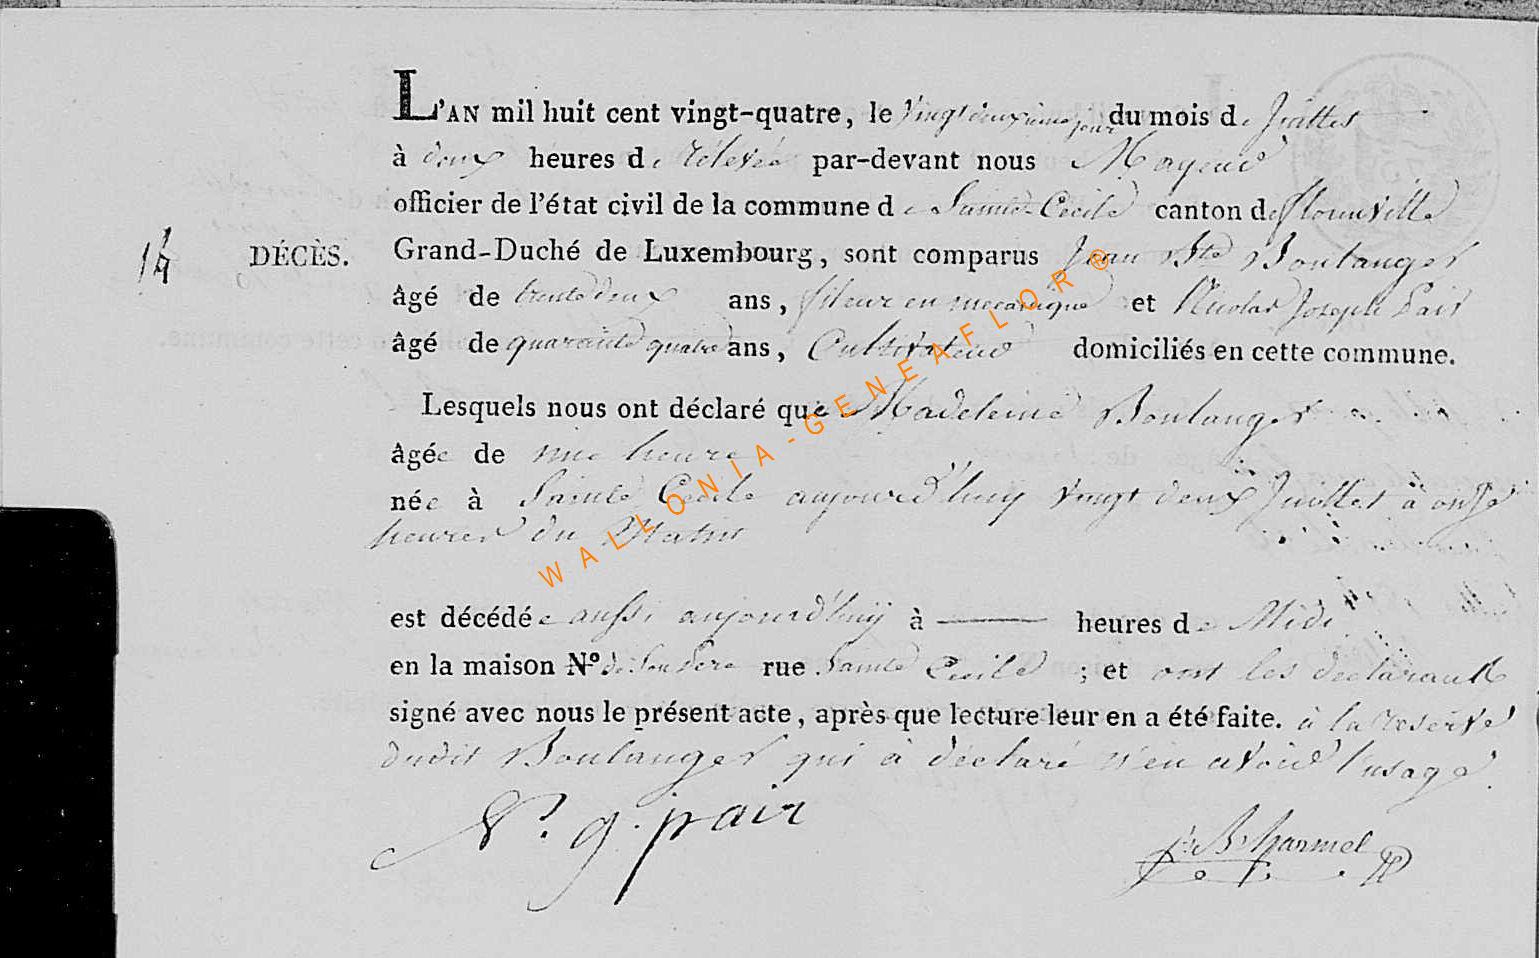 L'AN mil huit cent vingt-quatre, le vingt deuxieme jour du mois de Juillet
à deux heures de relevée par-devant nous Mayeur
officier de l'état civil de la commune de Sainte Cecile canton de florenville
14 DÉCÈS. Grand-Duché de Luxembourg, sont comparus Jean Bte Boulanger
âgé de trente deux ans, fileur en mecanique et Nicolas Joseph Pair
âgé de quarante quatre ans, Cultivateur domiciliés en cette commune.
Lesquels nous ont déclaré que Madeleine Boulanger
âgée de une heure
née à Sainte Cecile aujourd'huy vingt deux Juillet à onze
heures du Matin
est décédée aussi aujourd'huy à heures de Midi
en la maison N° de son Pere rue Sainte Cecile ; et ont les declarants
signé avec nous le présent acte, après que lecture leur en a été faite. à la reserve
dudit Boulanger qui à déclaré n'en avoir l'usage.
N. J. pair
J. B. harmel
WALLONIA-GENEAFLOR®